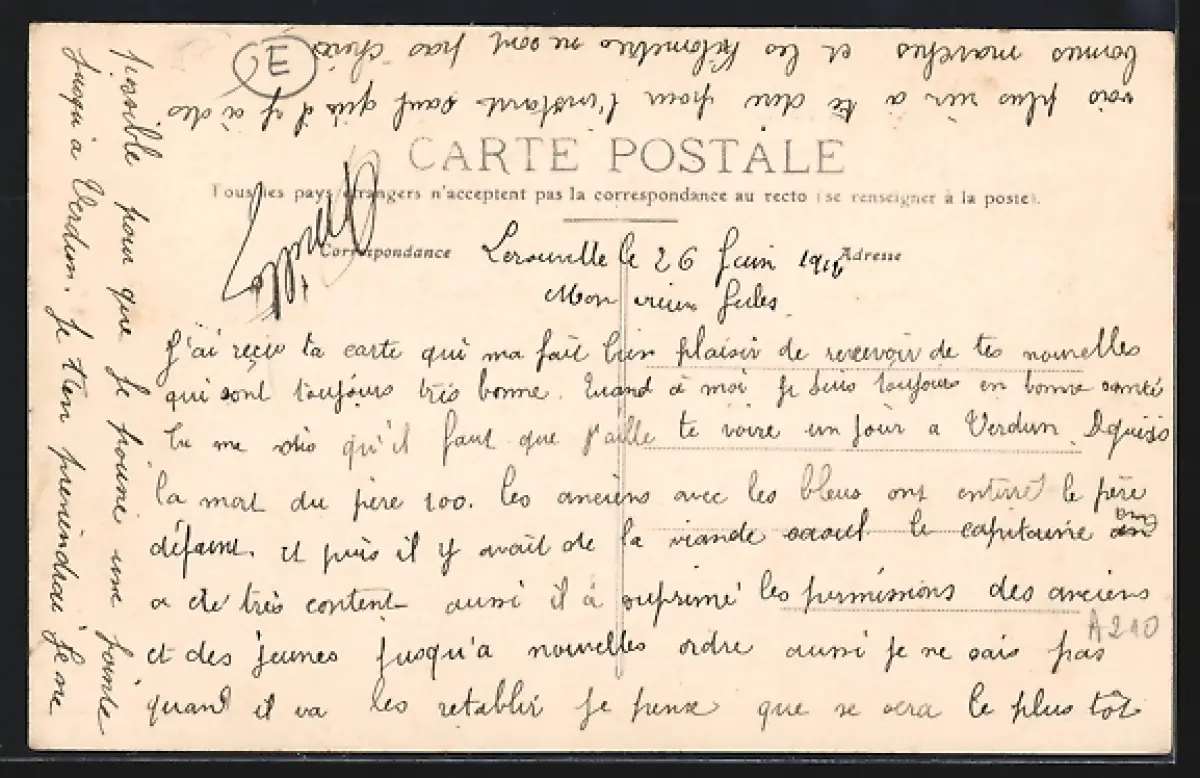 CARTE POSTALE
Tous les pays étrangers n'acceptent pas la correspondance au recto (se renseigner à la poste).
Correspondance
Adresse
Lerouville le 26 Juin 191
Mon vieux Jules
J'ai reçu ta carte qui ma fait bien plaisir de recevoir de tes nouvelles
qui sont toujours très bonne. Quand à moi je suis toujours en bonne santé
tu me dis qu'il faut que j'aille te voire un jour a Verdun. Depuis
la mort du père 100. les anciens avec les bleus ont enterré le père
défunt. et puis il y avait de la viande saoul le capitaine en
a été très content aussi il à suprimé les permissions des anciens
et des jeunes jusqu'a nouvelles ordre aussi je ne sais pas
quand il va les retablir je pense que se sera le plus tôt
possible pour que je puisse une pointe
jusqu'a Verdun. Je t'en previendrai je ne
vois plus rien a te dire pour l'instant sauf qu'il y a des
bonnes marches et les kilometres ne sont pas chers
E
A210